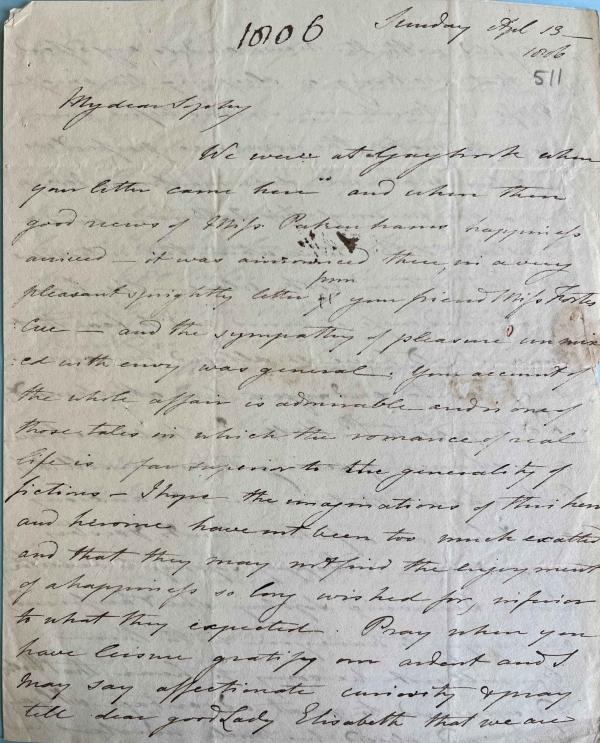 1806
Sunday Apl 13 –
1806
511
My dear Sophy
We were at Gaybrook when
your letter came here and when the
good news of Miss Pakenhams happiness
arrived – it was announced there, in a very
pleasant sprightly letter from your friend Miss Fortes
cue – and the sympathy of pleasure unmix
:ed with envy was general. Your account of
the whole affair is admirable and is one of
those tales in which the romance of real
life is far superior to the generality of
fictions – I hope the imaginations of this hero
and heroine have not been too much exalted
and that they may not find the enjoyment
of a happiness so long wished for, inferior
to what they expected. Pray when you
have leisure gratify our ardent and I
may say affectionate curiosity & pray
tell dear good Lady Elisabeth that we are